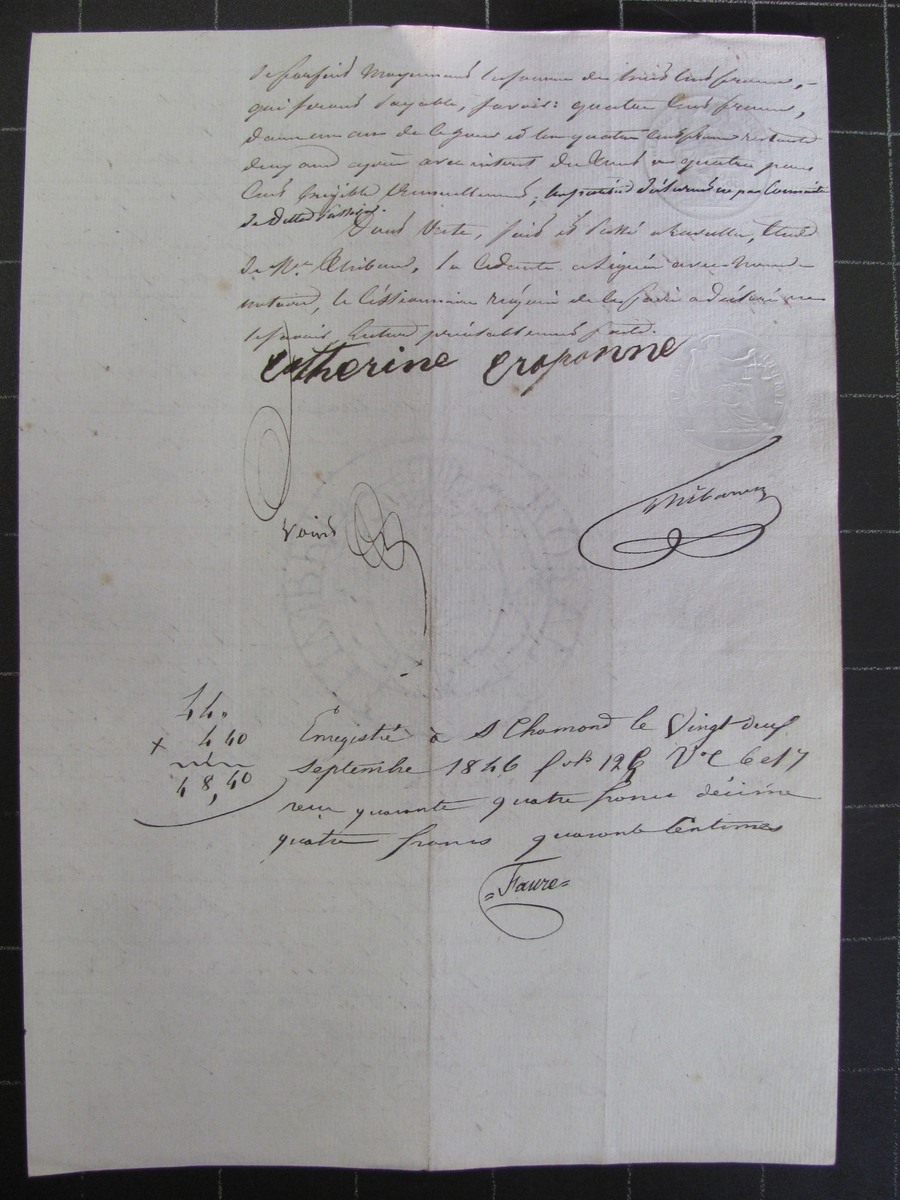 moyennant la somme de huit cents francs,
qui seront payable, savoir: quatre cents francs,
dans un an de ce jour et les quatre cents francs restants
deux ans après avec intérêt du tout à quatre pour
cent exigible annuellement,
Dont acte, fait et passé
de Me Thibaud, la cédante a signé avec nous
notaire, le cessionnaire requis de le faire a déclaré ne
le savoir, lecture préalablement faite.
Catherine Croponne
Thibaud
44.
+ 4 40
48,40
Enregistré à St Chamond le Vingt deux
septembre 1846 fol 126 Vo C 6 et 7
reçu quarante quatre francs décime
quatre francs quarante Centimes
=Faure=